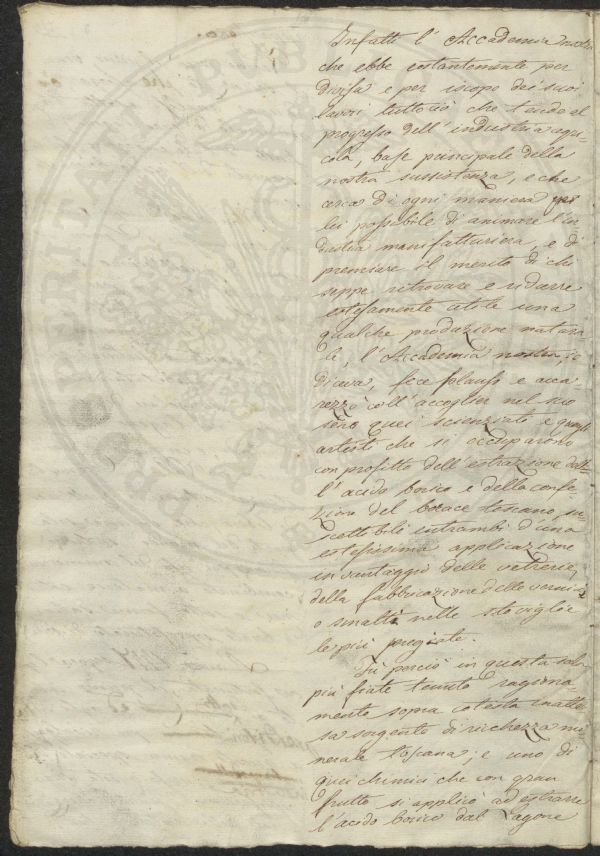 Infatti l'Accademia nostra
che ebbe costantemente per
divisa e per iscopo dei suoi
lavori tutto ciò che tende al
progresso dell'industria agri-
cola, base principale della
nostra sussistenza, e che
cerca di ogni maniera per
lei possibile di animare l'in-
dustria manifatturiera, e di
premiare il merito di chi
seppe ritrovare e ridurre
estesamente utile una
qualche produzione natura-
le, l'Accademia nostra, io
diceva, fece plauso e acca-
rezzò coll'accoglier nel suo
seno quei scienziati e quegli
artisti che si occuparono
con profitto dell'estrazione del-
l'acido borico e della confe-
zione del borace toscano, su-
scettibili entrambi d'una
estesissima applicazione
in vantaggio delle vetrerie,
della fabbricazione delle vernici
o smalti nelle stoviglie
le più pregiate.
Fu perciò in questa sala
più fiate tenuto ragiona-
mento sopra cotesta inatte-
sa sorgente di ricchezza mi-
nerale toscana, e uno di
quei chimici che con gran
frutto si applicò ad estrarre
l'acido borico dal Lagone